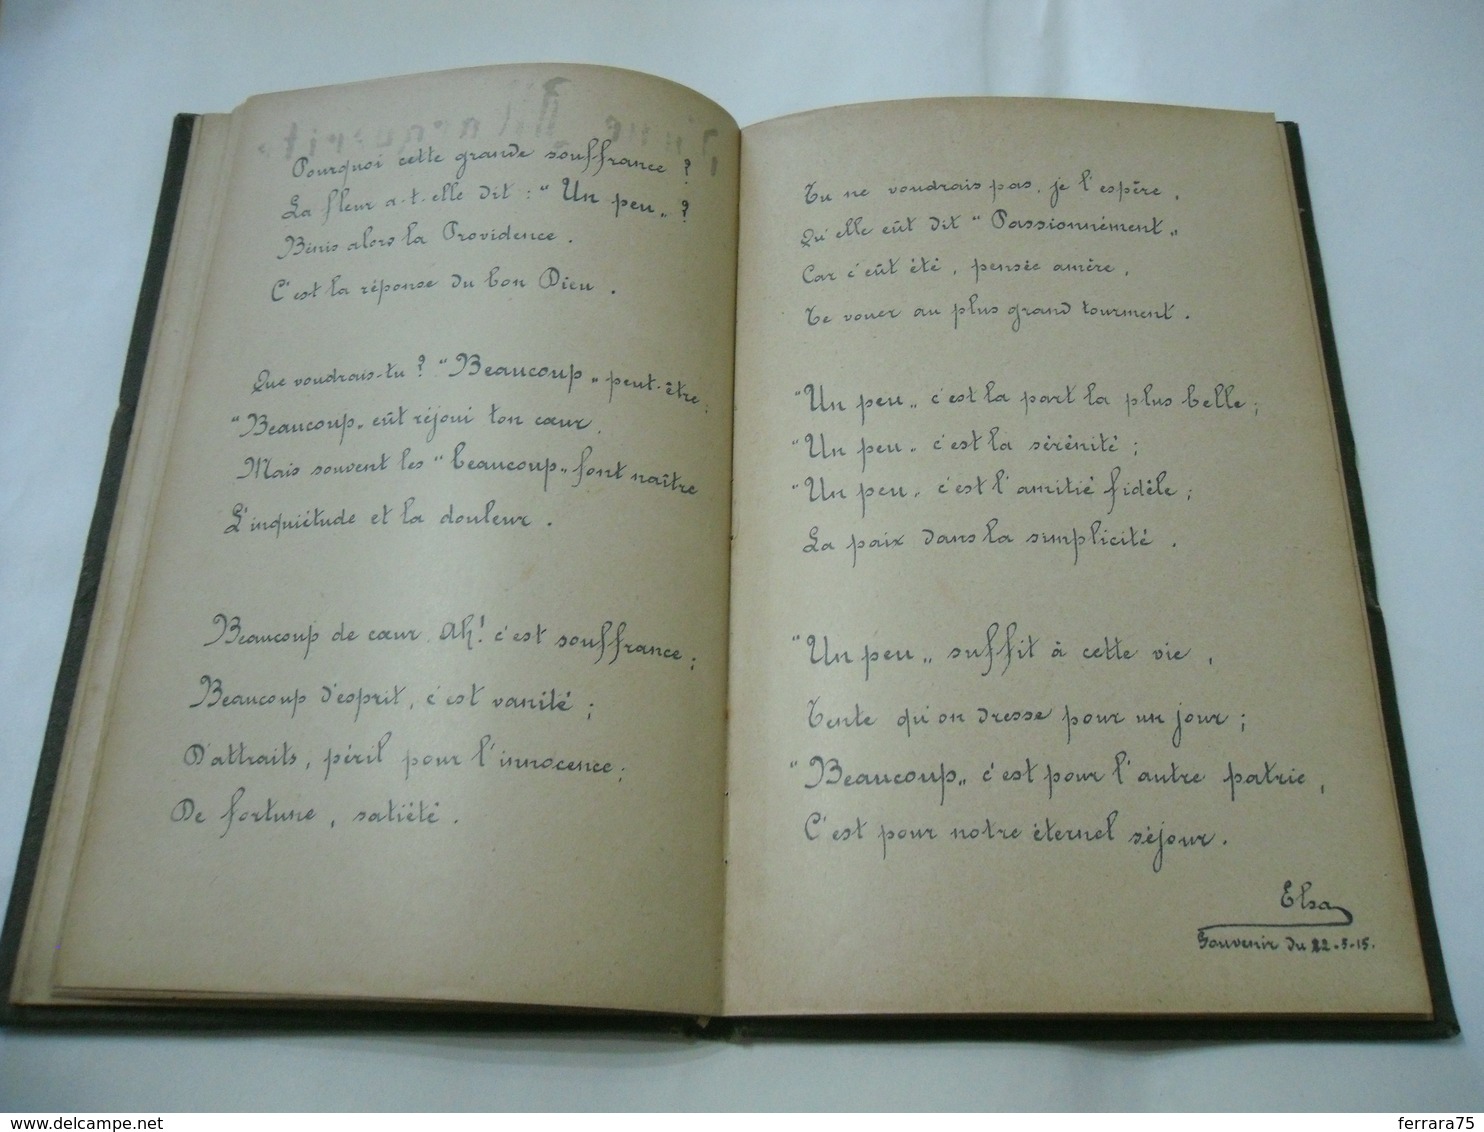 Pourquoi cette grande souffrance ?
La fleur a-t-elle dit : "Un peu" ?
Bénis alors la Providence.
C'est la réponse du bon Dieu.
Que voudrais-tu ? "Beaucoup" peut-être ;
"Beaucoup" eût réjoui ton cœur.
Mais souvent les "beaucoup" font naître
L'inquiétude et la douleur.
Beaucoup de cœur Ah! c'est souffrance ;
Beaucoup d'esprit, c'est vanité ;
D'attraits, péril pour l'innocence ;
De fortune, satiété.
Tu ne voudrais pas, je l'espère,
Qu'elle eût dit "Passionnément"
Car c'eût été, pensée amère,
Te vouer au plus grand tourment.
"Un peu" c'est la part la plus belle ;
"Un peu" c'est la sérénité ;
"Un peu" c'est l'amitié fidèle ;
La paix dans la simplicité.
"Un peu" suffit à cette vie,
Tente qu'on dresse pour un jour ;
"Beaucoup" c'est pour l'autre patrie,
C'est pour notre éternel séjour.
Elsa
Souvenir du 22-5-15.
ferrara75